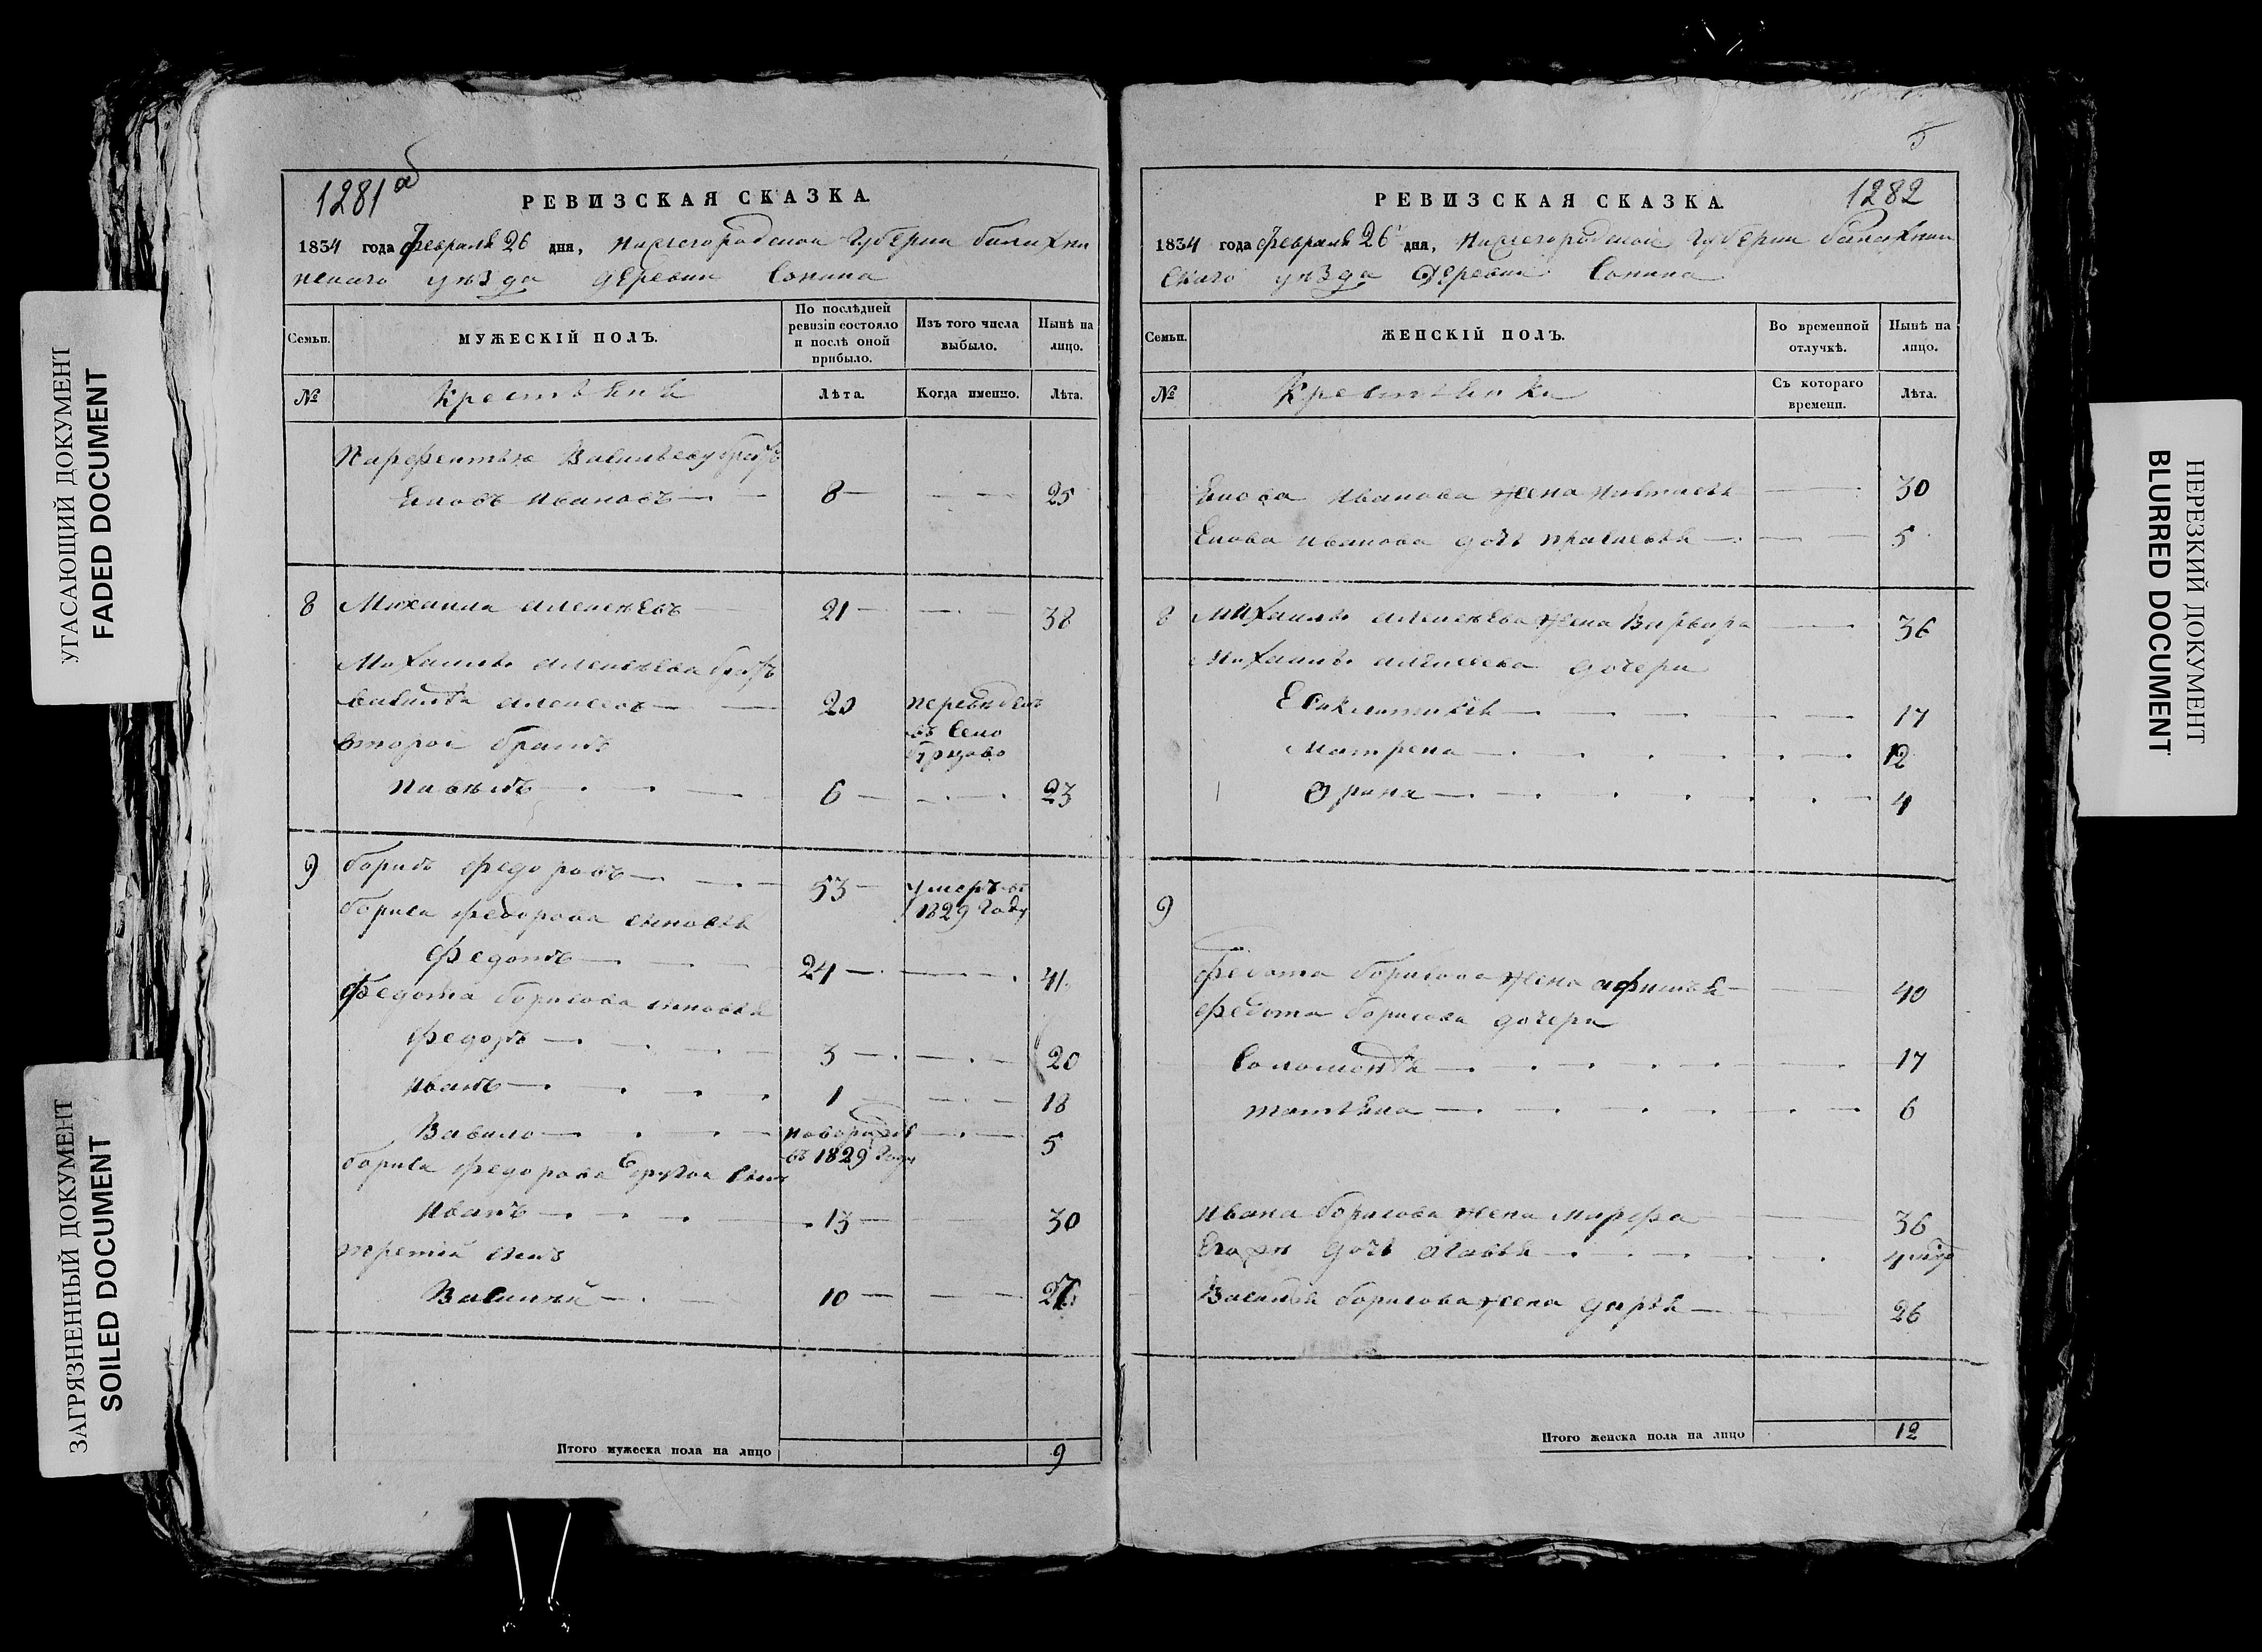 УГАСАЮЩИЙ ДОКУМЕНТ
FADED DOCUMENT
ЗАГРЯЗНЕННЫЙ ДОКУМЕНТ
SOILED DOCUMENT
1281 об
РЕВИЗСКАЯ СКАЗКА.
1834 года февраля 26 дня, Нижегородской Губернии балахни
нскаго уѣзда деревни Сокина
Семьи.
МУЖЕСКІЙ ПОЛЪ.
По послѣдней ревизіи состояло и послѣ оной прибыло.
Изъ того числа выбыло.
Нынѣ на лицо.
№
Крестьяне
Лѣта.
Когда именно.
Лѣта.
Парфентью Васильеву братъ
Ивановъ 8 25
8 Михаила Алексѣевъ 21 38
Михаилы Алексѣева братъ
Алексеевъ 20 переведенъ
въ Село
второй братъ
6 23
9 Борисъ Федоровъ 53 умеръ въ
1829 Году
Бориса Федорова сыновья
Федотъ 24 41
Федота Борисова сыновья
Федоръ 3 20
Иванъ 1 18
Вавило новорожд 5
въ 1829 Году
Бориса Федорова другой сынъ
Иванъ 13 30
третій сынъ
Василий 10 27
Итого мужеска пола на лицо 9
5
РЕВИЗСКАЯ СКАЗКА.
1282
1834 года февраля 26 дня, Нижегородской Губернии балахнин
скаго уѣзда деревни Сокина
Семьи.
ЖЕНСКІЙ ПОЛЪ.
Во временной отлучкѣ.
Нынѣ на лицо.
№
Крестьянки
Съ котораго времени.
Лѣта.
Иванова жена Настасья 30
Иванова дочь Прасковья 5
8 Михаилы Алексѣева жена Варвара 36
Михаилы Алексеева дочери
17
Матрена 12
Орина 4
9
Федота Борисова жена Афимья 40
Федота Борисова дочери
Соломонида 17
Татьяна 6
Ивана Борисова жена Марфа 36
дочь 4
Василья Борисова жена Дарья 26
Итого женска пола на лицо 12
НЕРЕЗКИЙ ДОКУМЕНТ
BLURRED DOCUMENT